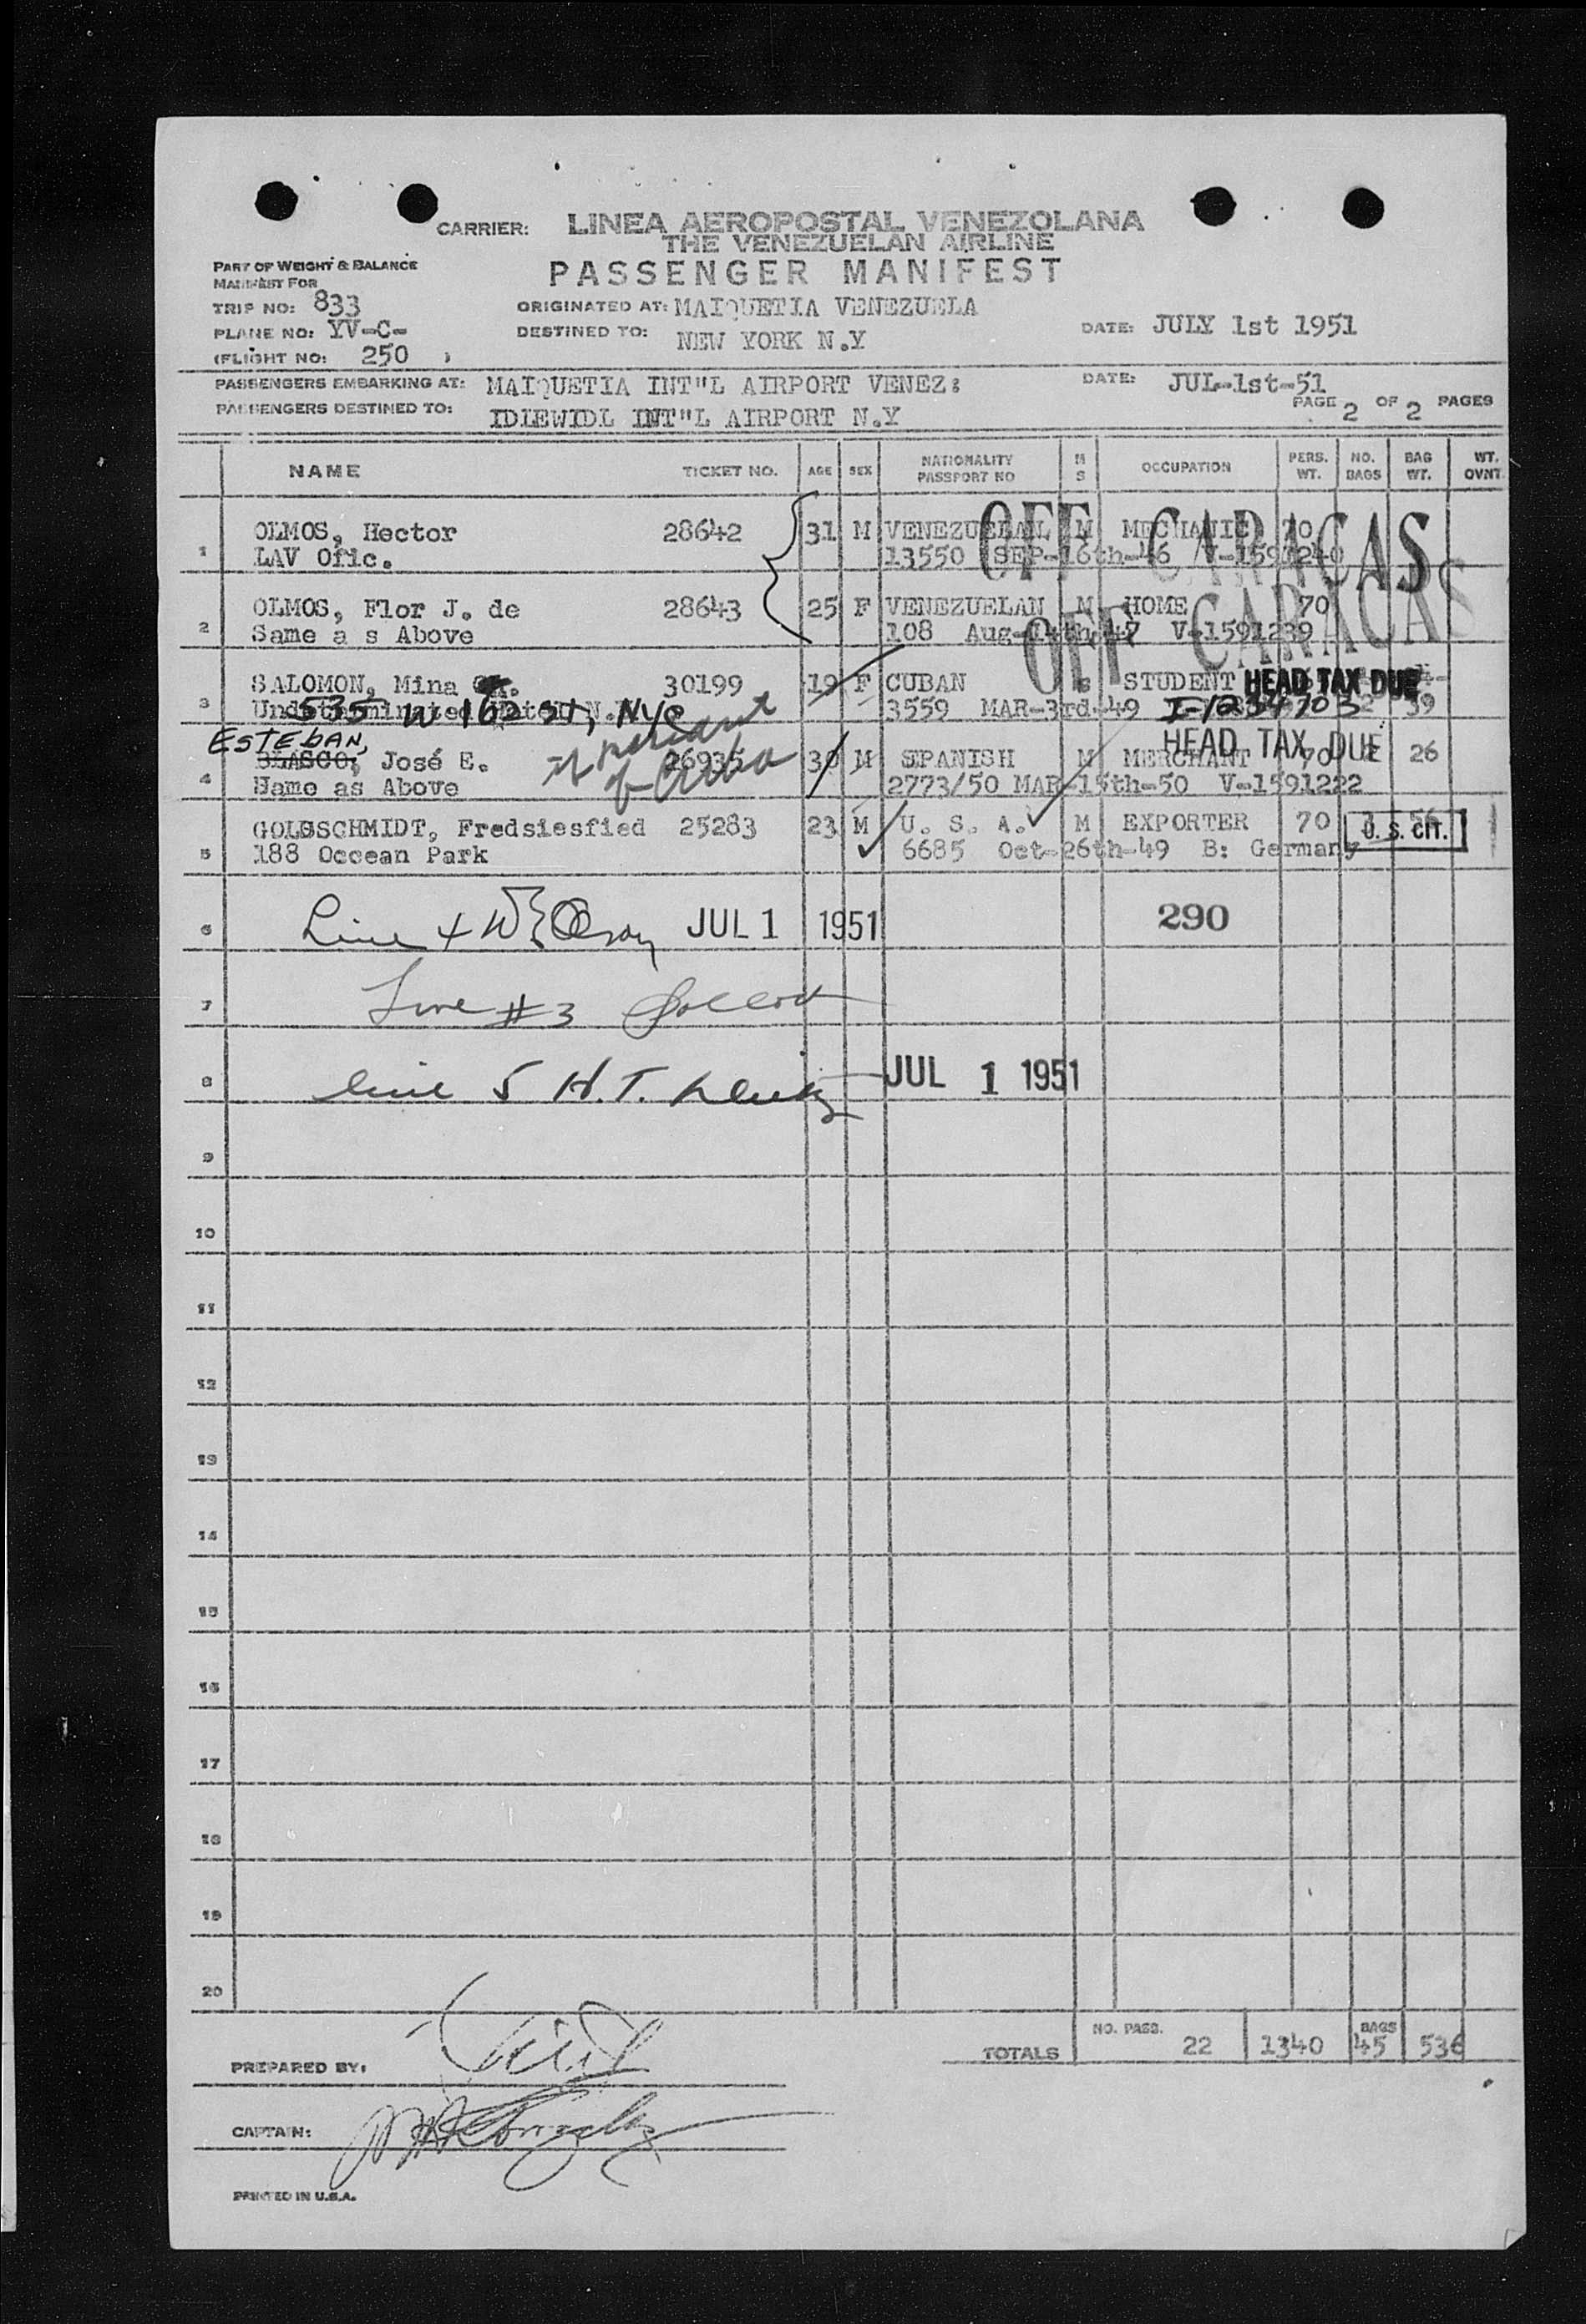 CARRIER: LINEA AEROPOSTAL VENEZOLANA
THE VENEZUELAN AIRLINE
PASSENGER MANIFEST
PART OF WEIGHT & BALANCE
MANIFEST FOR
TRIP NO: 833
PLANE NO: YV-C-
(FLIGHT NO: 250 )
ORIGINATED AT: MAIQUETIA VENEZUELA
DESTINED TO: NEW YORK N.Y
DATE: JULY 1st 1951
PASSENGERS EMBARKING AT: MAIQUETIA INT"L AIRPORT VENEZ:
DATE: JUL-1st-51
PASSENGERS DESTINED TO: IDLEWIDL INT"L AIRPORT N.Y
PAGE 2 OF 2 PAGES
NAME TICKET NO. AGE SEX NATIONALITY PASSPORT NO M S OCCUPATION PERS. WT. NO. BAGS BAG WT. WT. OVNT.
OFF CARACAS
1 OLMOS, Hector 28642 31 M VENEZUELAN M MECHANIC 70
LAV Ofic. 13550 SEP-16th-46 V-1591240
OFF CARACAS
2 OLMOS, Flor J. de 28643 25 F VENEZUELAN M HOME 70
Same a s Above 108 Aug-14th-47 V-1591239
3 SALOMON, Mina 30199 19 F CUBAN S STUDENT HEAD TAX DUE
535 W 162 st, NYC 3559 MAR-3rd-49 I-1234703 39
ESTEBAN,
4 BLASCO, José E. 26935 30 M SPANISH M MERCHANT 70 26
HEAD TAX DUE
Same as Above 2773/50 MAR-15th-50 V-1591222
of Cuba
5 GOLDSCHMIDT, Fredsiesfied 25283 23 M U. S. A. M EXPORTER 70
U. S. CIT.
188 Occean Park 6685 Oct-26th-49 B: Germany
6 Line 4 JUL 1 1951 290
7 Line #3
8 line 5 H.T. JUL 1 1951
9
10
11
12
13
14
15
16
17
18
19
20
TOTALS NO. PASS. 22 1340 BAGS 45 536
PREPARED BY:
CAPTAIN:
PRINTED IN U.S.A.